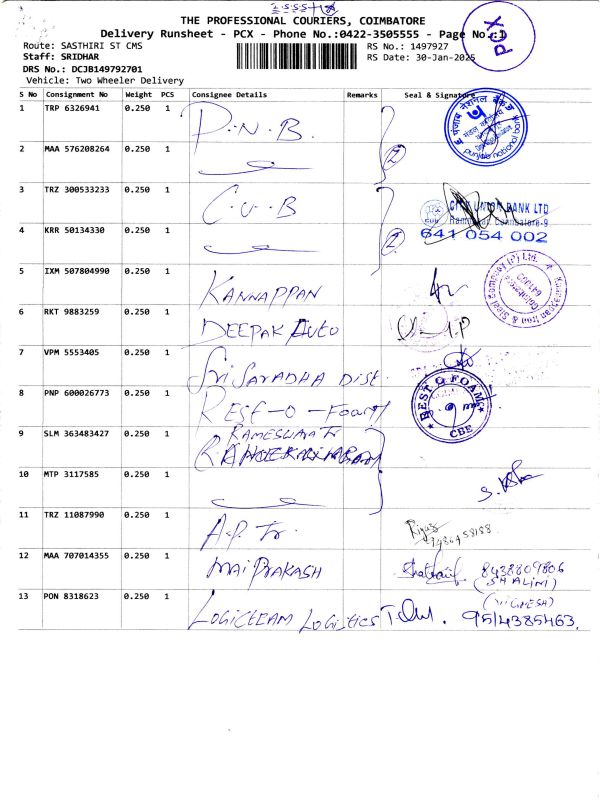 THE PROFESSIONAL COURIERS, COIMBATORE
Delivery Runsheet - PCX - Phone No.:0422-3505555 - Page No.:1
PCX
Route: SASTHIRI ST CMS RS No.: 1497927
Staff: SRIDHAR RS Date: 30-Jan-2025
DRS No.: DCJB149792701
Vehicle: Two Wheeler Delivery
S No Consignment No Weight PCS Consignee Details Remarks Seal & Signature
1 TRP 6326941 0.250 1 P.N.B.
punjab national bank
2 MAA 576208264 0.250 1 2
3 TRZ 300533233 0.250 1 C.U.B CITY UNION BANK LTD
CUB Coimbatore-9
4 KRR 50134330 0.250 1 2 641 054 002
5 IXM 507804990 0.250 1 KANNAPPAN
6 RKT 9883259 0.250 1 DEEPAK AUTO
7 VPM 5553405 0.250 1 Sri Saradha Dist.
8 PNP 600026773 0.250 1 BEST O FOAM CBE
9 SLM 363483427 0.250 1 RAMESWARA Tr
10 MTP 3117585 0.250 1
11 TRZ 11087990 0.250 1 A.P. Tr. Riyaz
12 MAA 707014355 0.250 1 MAIPRAKASH 8438809806
(SHALINI)
13 PON 8318623 0.250 1 LOGICTEAM LOGISTICS (VIGNESH)
9514385463.